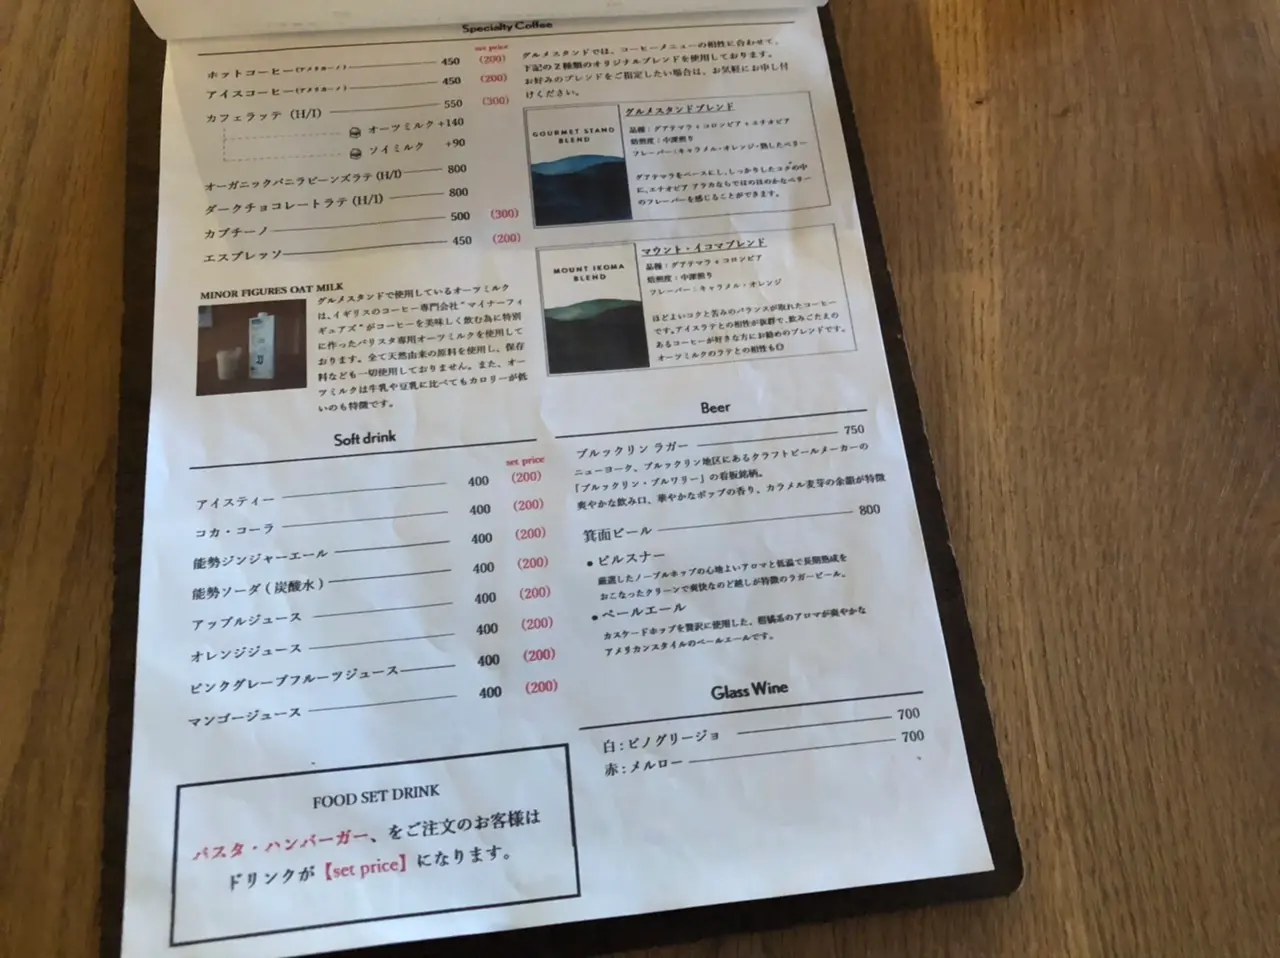 Specialty Coffee
set price
ホットコーヒー(アメリカーノ) 450 (200)
アイスコーヒー(アメリカーノ) 450 (200)
カフェラッテ (H/I) 550 (300)
オーツミルク +140
ソイミルク +90
オーガニックバニラビーンズラテ (H/I) 800
ダークチョコレートラテ (H/I) 800
カプチーノ 500 (300)
エスプレッソ 450 (200)
MINOR FIGURES OAT MILK
グルメスタンドで使用しているオーツミルク
は、イギリスのコーヒー専門会社"マイナーフィ
ギュアズ"がコーヒーを美味しく飲む為に特別
に作ったバリスタ専用オーツミルクを使用して
おります。全て天然由来の原料を使用し、保存
料なども一切使用しておりません。また、オー
ツミルクは牛乳や豆乳に比べてもカロリーが低
いのも特徴です。
グルメスタンドでは、コーヒーメニューの相性に合わせて、
下記の2種類のオリジナルブレンドを使用しております。
お好みのブレンドをご指定したい場合は、お気軽にお申し付
けください。
GOURMET STAND
BLEND
グルメスタンドブレンド
品種：グアテマラ + コロンビア + エチオピア
焙煎度：中深煎り
フレーバー：キャラメル・オレンジ・熟したベリー
グアテマラをベースにし、しっかりしたコクの中
に、エチオピア アラカならではのほのかなベリー
のフレーバーを感じることができます。
MOUNT IKOMA
BLEND
マウント・イコマブレンド
品種：グアテマラ + コロンビア
焙煎度：中深煎り
フレーバー：キャラメル・オレンジ
ほどよいコクと苦みのバランスが取れたコーヒー
です。アイスラテとの相性が抜群で、飲みごたえの
あるコーヒーが好きな方にお勧めのブレンドです。
オーツミルクのラテとの相性も◎
Soft drink
set price
アイスティー 400 (200)
コカ・コーラ 400 (200)
能勢ジンジャーエール 400 (200)
能勢ソーダ ( 炭酸水 ) 400 (200)
アップルジュース 400 (200)
オレンジジュース 400 (200)
ピンクグレープフルーツジュース 400 (200)
マンゴージュース 400 (200)
Beer
ブルックリン ラガー 750
ニューヨーク、ブルックリン地区にあるクラフトビールメーカーの
「ブルックリン・ブルワリー」の看板銘柄。
爽やかな飲み口、華やかなホップの香り、カラメル麦芽の余韻が特徴
箕面ビール 800
●ピルスナー
厳選したノーブルホップの心地よいアロマと低温で長期熟成を
おこなったクリーンで爽快なのど越しが特徴のラガービール。
●ペールエール
カスケードホップを贅沢に使用した、柑橘系のアロマが爽やかな
アメリカンスタイルのペールエールです。
Glass Wine
白 : ピノグリージョ 700
赤 : メルロー 700
FOOD SET DRINK
パスタ・ハンバーガー、をご注文のお客様は
ドリンクが【set price】になります。